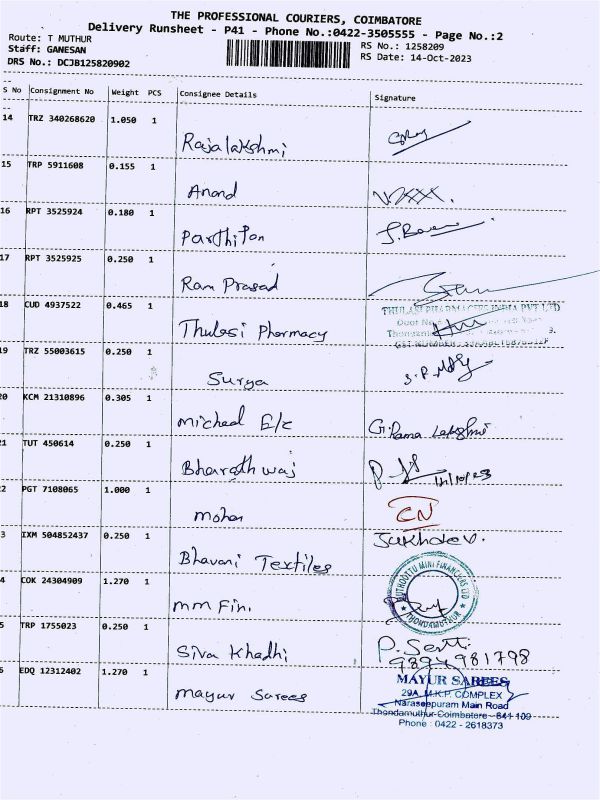 THE PROFESSIONAL COURIERS, COIMBATORE
Delivery Runsheet - P41 - Phone No.:0422-3505555 - Page No.:2
Route: T MUTHUR
Staff: GANESAN
DRS No.: DCJB125820902
RS No.: 1258209
RS Date: 14-Oct-2023
S No Consignment No Weight PCS Consignee Details Signature
14 TRZ 340268620 1.050 1
Rajalakshmi
15 TRP 5911608 0.155 1
Anand
16 RPT 3525924 0.180 1
Parthipan
17 RPT 3525925 0.250 1
Ram Prasad
18 CUD 4937522 0.465 1
Thulasi Pharmacy
THULASI PHARMACIES INDIA PVT LTD
Door No
19 TRZ 55003615 0.250 1
Surya
20 KCM 21310896 0.305 1
Micheal E/c G. Rama Lakshmi
21 TUT 450614 0.250 1
Bharathwaj 14/10/23
2 PGT 7108065 1.000 1
Mohan CN
3 IXM 504852437 0.250 1 Sukhdev.
Bhavani Textiles
4 COK 24304909 1.270 1
MUTHOOTTU MINI FINANCIERS LTD
THONDAMUTHUR
MM Fin.
5 TRP 1755023 0.250 1
Siva Khadhi
9894981798
6 EDQ 12312402 1.270 1
Mayur Sarees
MAYUR SAREES
29A, M.K.P. COMPLEX
Naraseepuram Main Road
Thondamuthur Coimbatore - 641 109
Phone : 0422 - 2618373